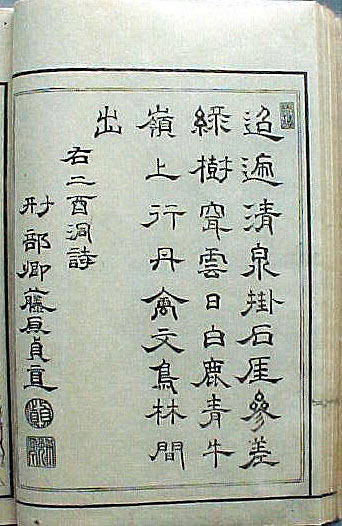 迢遞清泉掛石厓參差
綠樹窅雲日白鹿青牛
嶺上行丹禽文鳥林間
出
右二酉洞詩
刑部卿藤原貞直